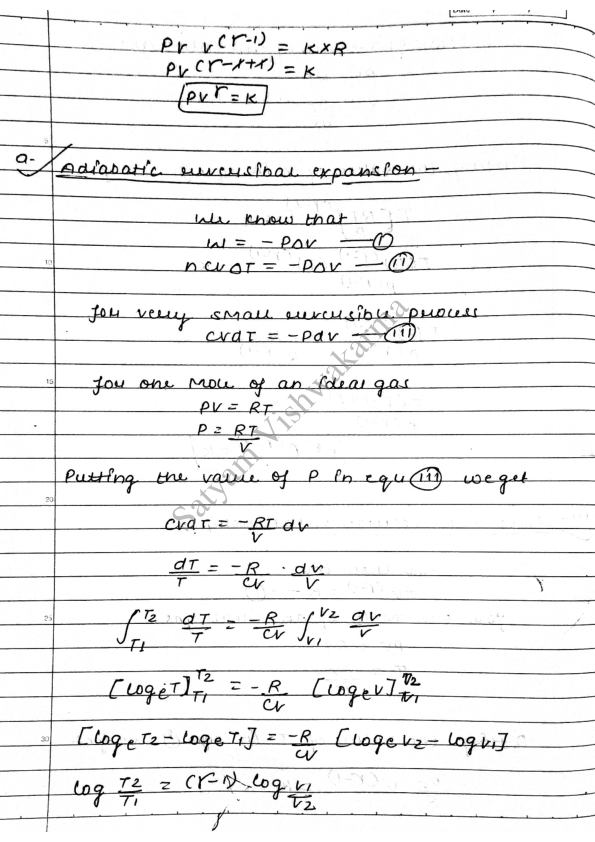 Pr v^(r-1) = K×R
Pv^(r-1+1) = K
Pv^r = K
a- Adiabatic reversibal expansion -
We know that
W = -PΔV — (I)
nCvΔT = -PΔV — (II)
for very small reversible process
CvdT = -Pdv — (III)
for one mole of an ideal gas
PV = RT
P = RT/V
Putting the value of P in equ (III) we get
CvdT = -RT/V dv
dT/T = -R/Cv · dv/V
∫_T1^T2 dT/T = -R/Cv ∫_V1^V2 dv/V
[logeT]_T1^T2 = -R/Cv [logeV]_V1^V2
[logeT2 - logeT1] = -R/Cv [logeV2 - logV1]
log T2/T1 = (r-1) log V1/V2
Satyam Vishwakarma
5
10
15
20
25
30